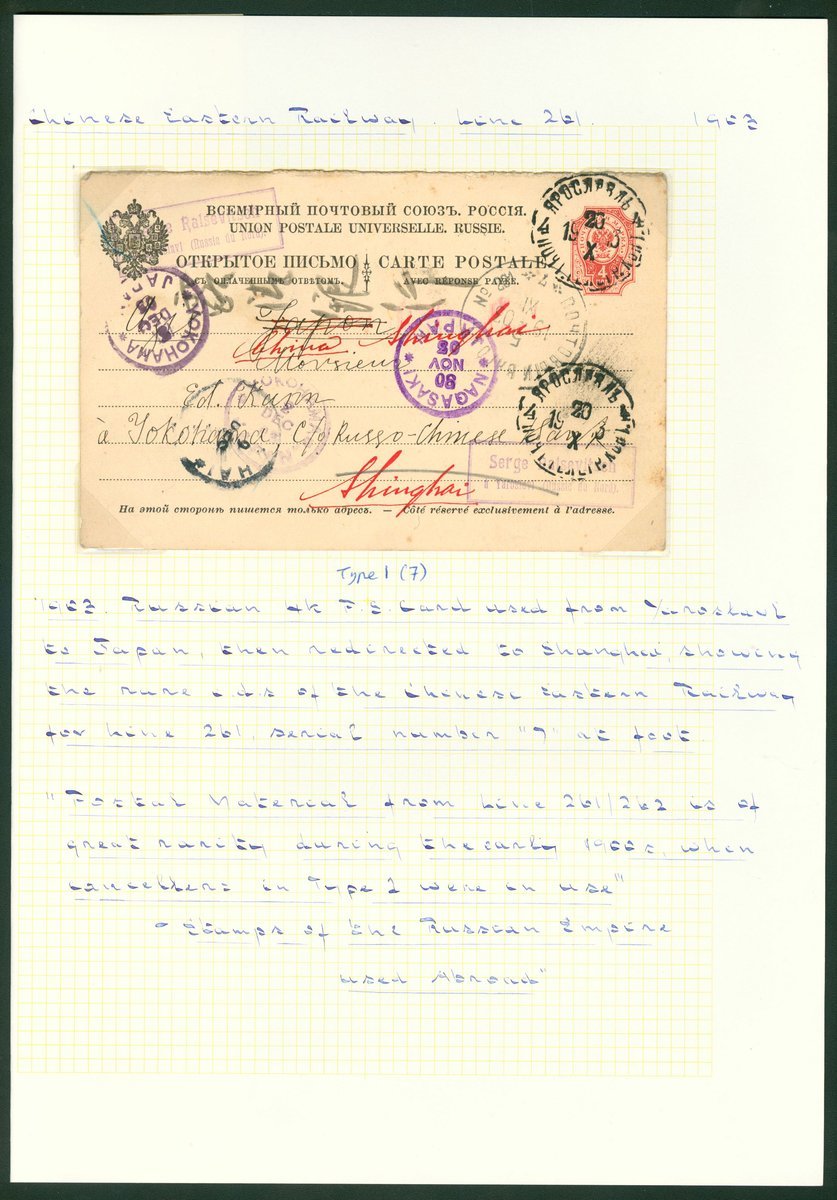 Chinese Eastern Railway. Line 261. 1903
ВСЕМІРНЫЙ ПОЧТОВЫЙ СОЮЗЪ. РОССІЯ.
UNION POSTALE UNIVERSELLE. RUSSIE.
ОТКРЫТОЕ ПИСЬМО CARTE POSTALE
СЪ ОПЛАЧЕННЫМЪ ОТВѢТОМЪ. AVEC RÉPONSE PAYÉE.
ЯРОСЛАВЛЬ
20 X
YOKOHAMA
DEC
Japon
China Shinghai
Monsieur
NAGASAKI JAPAN
30 NOV 03
ЯРОСЛАВЛЬ
20 X
Ed. Kann
à Yokohama, c/o Russo-Chinese Bank
Serge
Shinghai
На этой сторонѣ пишется только адресъ. — Côté réservé exclusivement à l'adresse.
Type 1 (7)
1903. Russian 4k P.S. Card used from Yaroslavl
to Japan, then redirected to Shanghai, showing
the rare c.d.s of the Chinese Eastern Railway
for Line 261, serial number "7" at foot.
"Postal Material from Line 261/262 is of
great rarity during the early 1900s, when
cancellers in Type 1 were in use"
- Stamps of the Russian Empire
used Abroad"